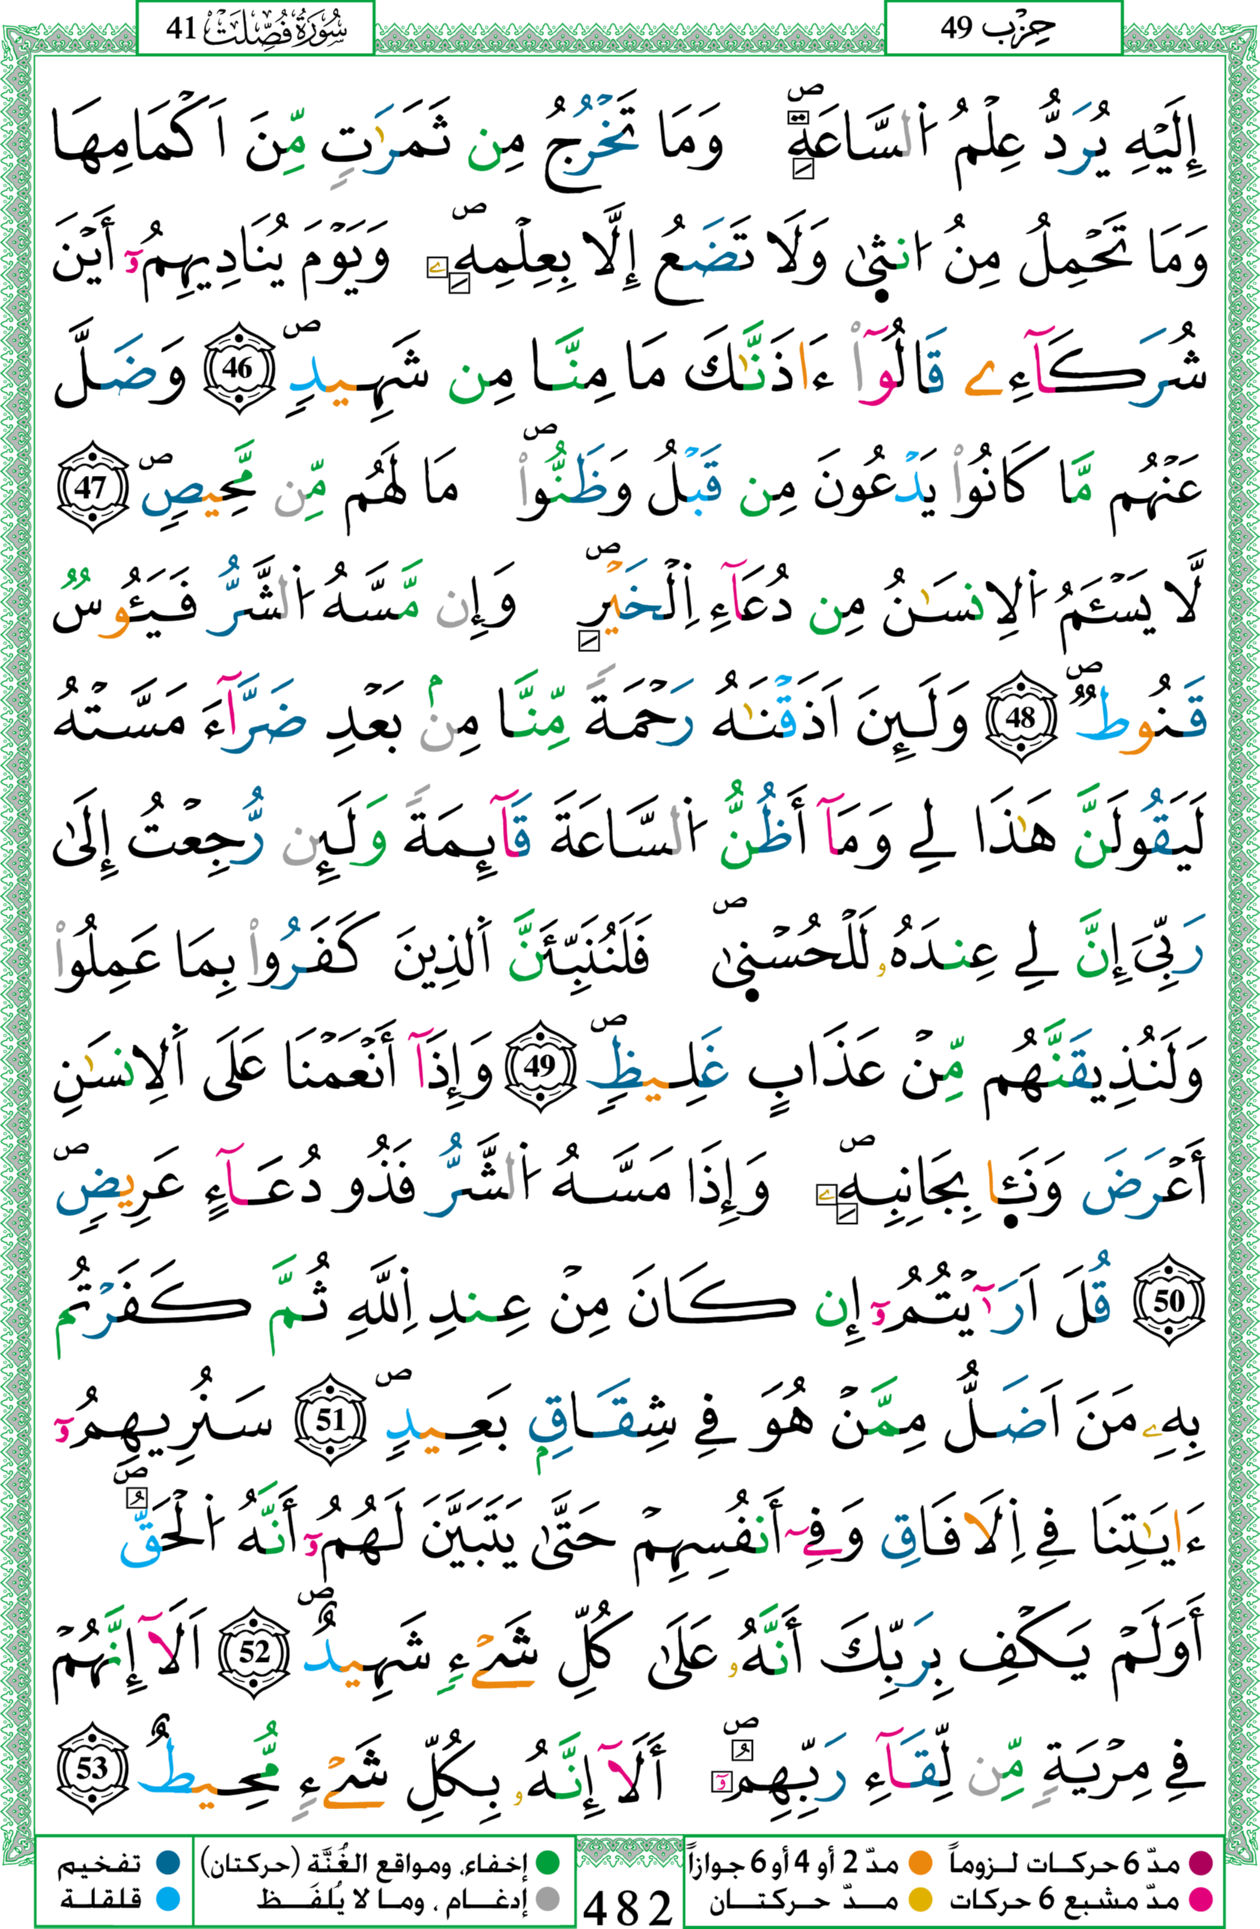 حِزْب 49
سُورَةُ فُصِّلَتْ 41
إِلَيْهِ يُرَدُّ عِلْمُ اُ۬لسَّاعَةِۖ وَمَا تَخْرُجُ مِن ثَمَرَٰتٖ مِّنَ اَكْمَامِهَا
وَمَا تَحْمِلُ مِنُ ا۟نث۪يٰ وَلَا تَضَعُ إِلَّا بِعِلْمِهِۦۖ وَيَوْمَ يُنَادِيهِمُۥٓ أَيْنَ
شُرَكَآءِے قَالُوٓاْ ءَاذَنَّٰكَ مَا مِنَّا مِن شَهِيدٖۖ 46 وَضَلَّ
عَنْهُم مَّا كَانُواْ يَدْعُونَ مِن قَبْلُ وَظَنُّواْۖ مَا لَهُم مِّن مَّحِيصٖۖ 47
لَّا يَسْـَٔمُ اُ۬لِانسَٰنُ مِن دُعَآءِ اِ۬لْخَيْرِۖ وَإِن مَّسَّهُ اُ۬لشَّرُّ فَيَـُٔوسٞ
قَنُوطٞۖ 48 وَلَئِنَ اَذَقْنَٰهُ رَحْمَةٗ مِّنَّا مِنۢ بَعْدِ ضَرَّآءَ مَسَّتْهُ
لَيَقُولَنَّ هَٰذَا لِے وَمَآ أَظُنُّ اُ۬لسَّاعَةَ قَآئِمَةٗ وَلَئِن رُّجِعْتُ إِلَىٰ
رَبِّيَ إِنَّ لِے عِندَهُۥ لَلْحُسْن۪يٰۖ فَلَنُنَبِّئَنَّ اَ۬لذِينَ كَفَرُواْ بِمَا عَمِلُواْ
وَلَنُذِيقَنَّهُم مِّنْ عَذَابٍ غَلِيظٖۖ 49 وَإِذَآ أَنْعَمْنَا عَلَى اَ۬لِانسَٰنِ
أَعْرَضَ وَنَـ۪ٔا بِجَانِبِهِۦۖ وَإِذَا مَسَّهُ اُ۬لشَّرُّ فَذُو دُعَآءٍ عَرِيضٖۖ
50 قُلَ اَرَٰٓيْتُمُۥٓ إِن كَانَ مِنْ عِندِ اِ۬للَّهِ ثُمَّ كَفَرْتُم
بِهِۦ مَنَ اَضَلُّ مِمَّنْ هُوَ فِے شِقَاقِۢ بَعِيدٖۖ 51 سَنُرِيهِمُۥٓ
ءَايَٰتِنَا فِے اِ۬لَافَاقِ وَفِےٓ أَنفُسِهِمْ حَتَّىٰ يَتَبَيَّنَ لَهُمُۥٓ أَنَّهُ اُ۬لْحَقُّۖ
أَوَلَمْ يَكْفِ بِرَبِّكَ أَنَّهُۥ عَلَىٰ كُلِّ شَےْءٖ شَهِيدٌۖ 52 اَلَآ إِنَّهُمْ
فِے مِرْيَةٖ مِّن لِّقَآءِ رَبِّهِمُۥٓۖ أَلَآ إِنَّهُۥ بِكُلِّ شَےْءٖ مُّحِيطٌۖ 53
مدّ 6 حركات لـزوماً مدّ 2 أو 4 أو 6 جوازاً
مدّ مشبع 6 حركات مـدّ حركتـان
482
إخفاء، ومواقع الغُنَّة (حركتان) تفخيم
إدغـام ، ومـا لا يُلفَـظ قلقلة